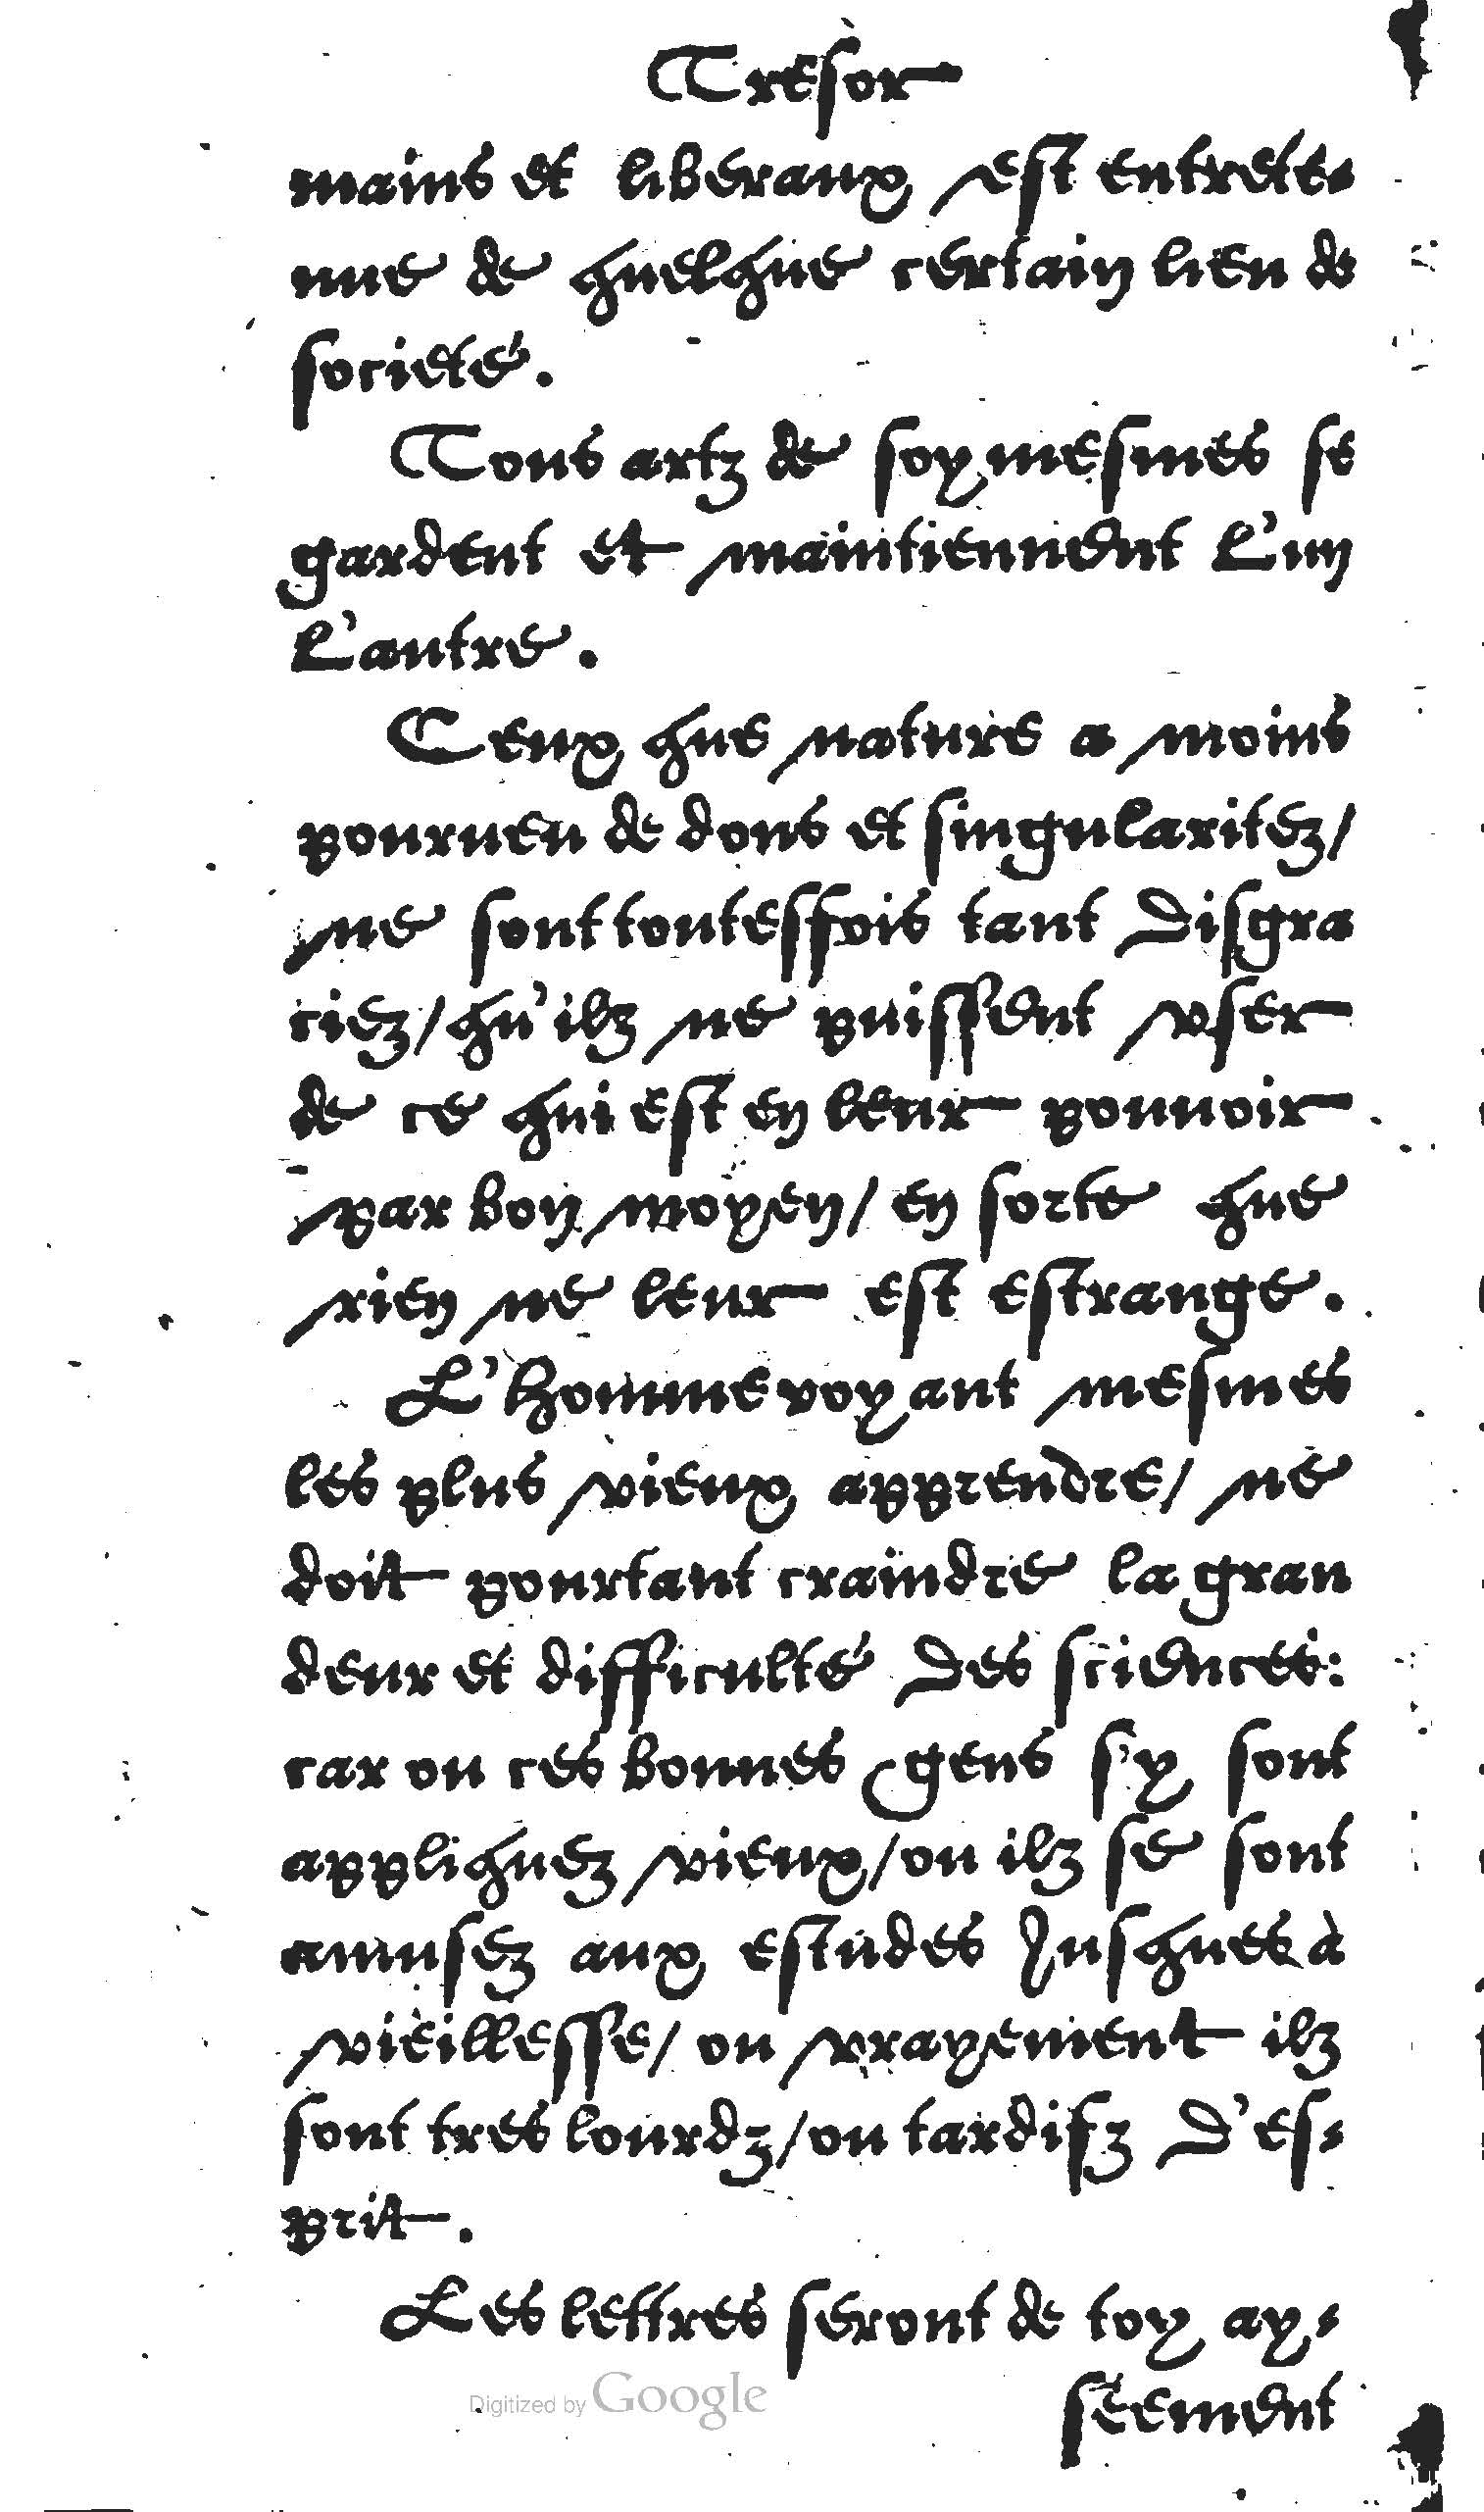 Tresor
mains et liberaux est entrete-
nue de quelque certain lien de
societé.
Tous artz de soy mesmes se
gardent et maintiennent l'un
l'autre.
Ceux que nature a moins
pourueu de dons et singularitez/
ne sont toutesfois tant disgra
ciez/qu'ilz ne puissent vser
de ce qui est en leur pouuoir
par bon moyen/ en sorte que
rien ne leur est estrange.
L'homme voyant mesmes
les plus vieux apprendre/ ne
doit pourtant craindre la gran
deur et difficulté des sciences:
car ou ces bonnes gens s'y sont
appliquez vieux/ou ilz se sont
amusez aux estudes Jusques à
vieillesse/ ou vrayement ilz
sont tres lourdz/ou tardifz d'es-
prit.
Les lettres seront de toy ay-
séement
Digitized by Google